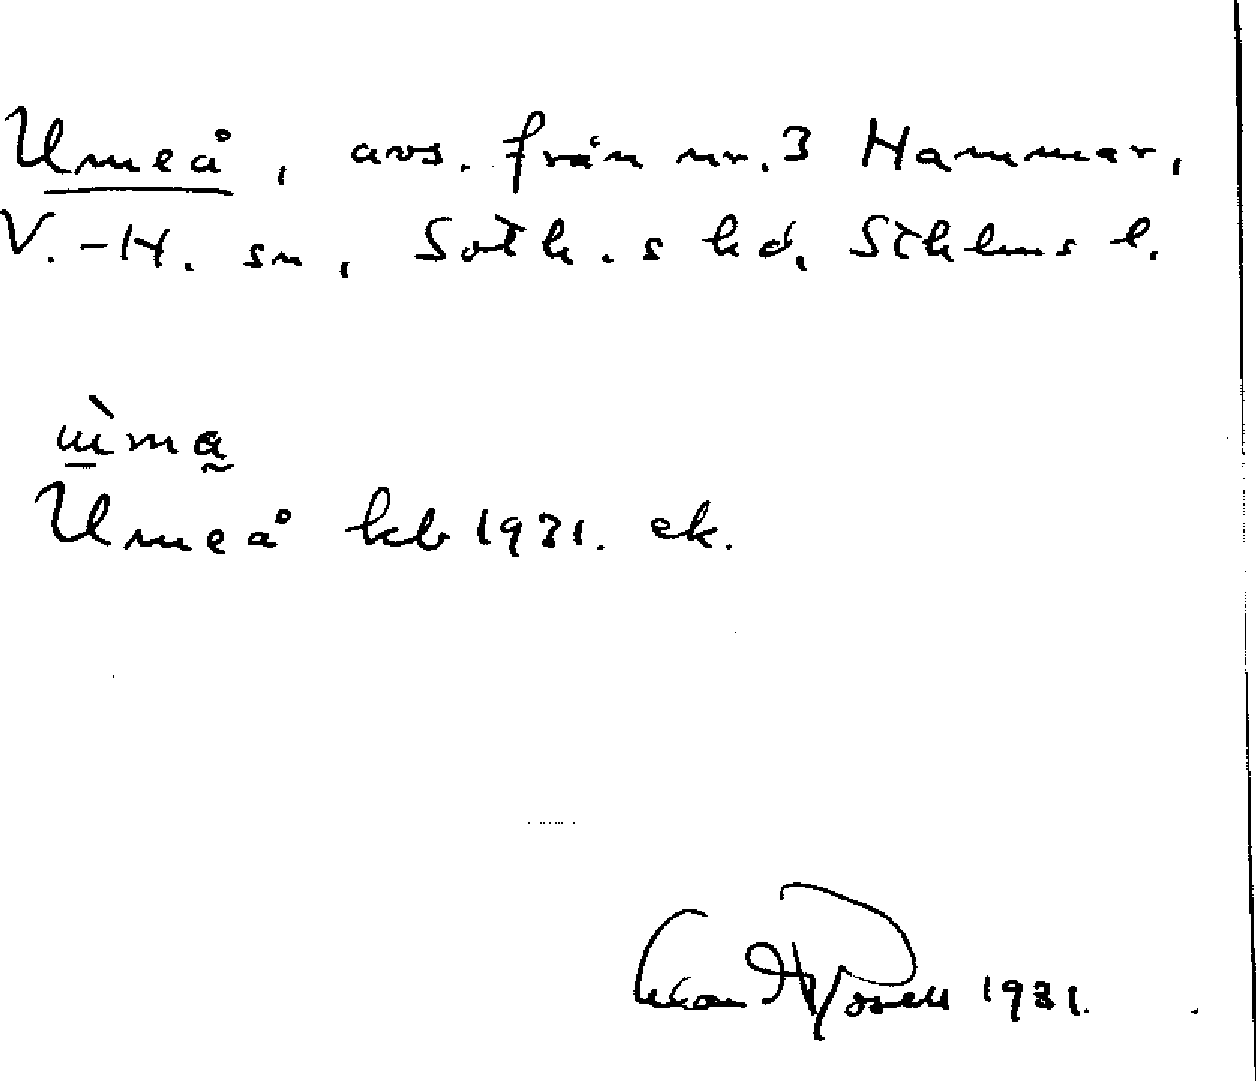 Umeå, avs. från nr. 3 Hammar,
V.-H. sn, Soth. s hd, Sthlms l.
Umeå kb 1931. ek.
1931.